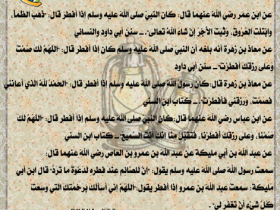 عن ابن عمر رضي الله عنهما قال: كان النبي صلى الله عليه وسلم إذا أفطر قال: "ذهب الظمأ،
وابتلت العروق، وثبت الأجر إن شاء الله تعالى".. سنن أبي داود والنسائي
عن معاذ بن زهرة أنه بلغه أن النبي صلى الله عليه وسلم كان إذا أفطر قال: "اللهم لك صمت
وعلى رزقك أفطرت".. سنن أبي داود
عن معاذ بن زهرة قال: كان رسول الله صلى الله عليه وسلم إذا أفطر قال: "الحمد لله الذي أعانني
فصمت، ورزقني فأفطرت".. كتاب ابن السني
عن ابن عباس رضي الله عنهما قال: كان النبي صلى الله عليه وسلم إذا أفطر قال: "اللهم لك
صمنا، وعلى رزقك أفطرنا، فتقبل منا إنك أنت السميع".. كتاب ابن السني
عن عبد الله بن أبي مليكة عن عبد الله بن عمرو بن العاص رضي الله عنهما قال:
سمعت رسول الله صلى الله عليه وسلم يقول: "إن للصائم عند فطره لدعوة ما ترد" قال ابن أبي
مليكة: سمعت عبد الله بن عمرو إذا أفطر يقول: "اللهم إني أسألك برحمتك التي وسعت
كل شيء أن تغفر لي".